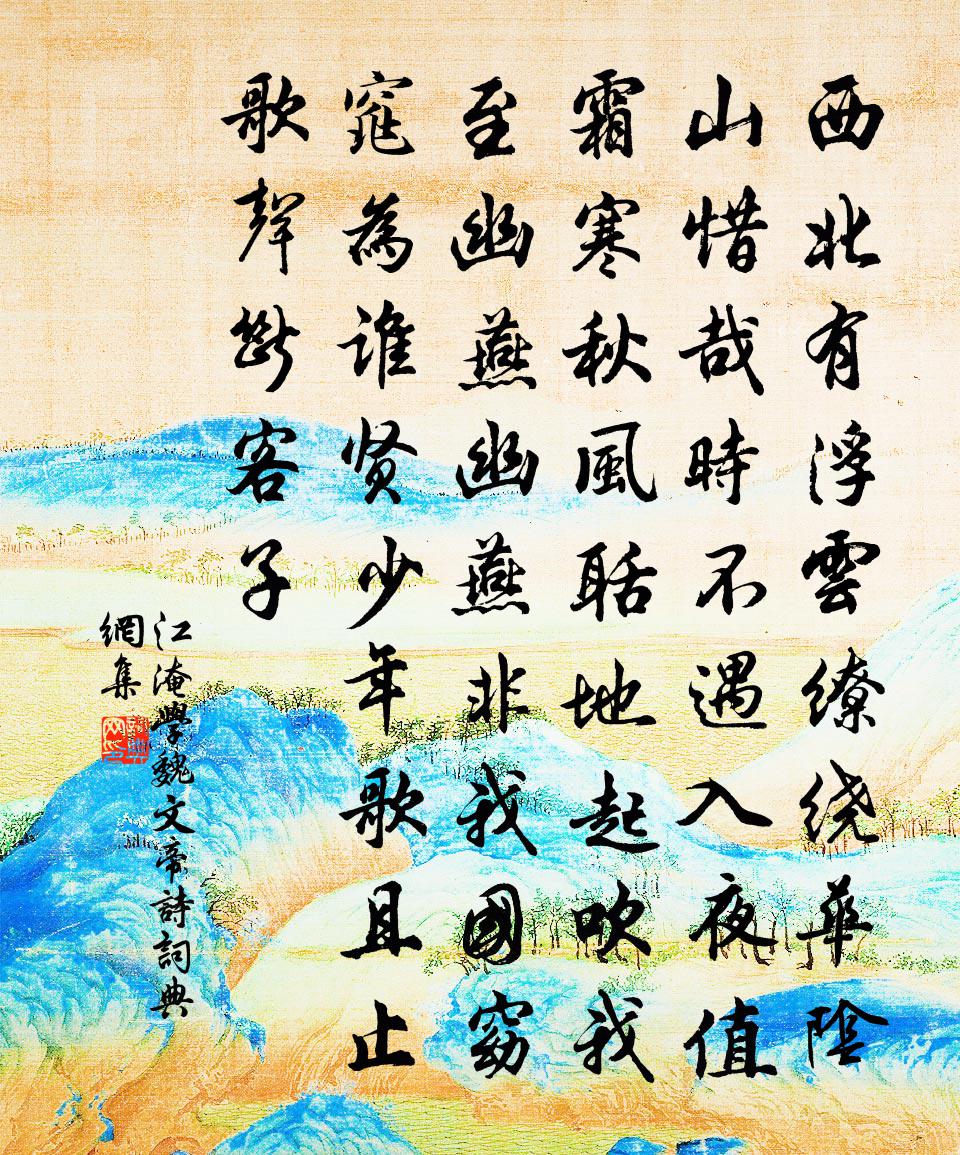 西北有浮雲繚绕華陰
山惜哉時不遇入夜值
霜寒秋風聒地起吹我
至幽燕幽燕非我國窈
窕為谁贤少年歌且止
歌聲斷客子
江淹學魏文帝詩詞典
網集